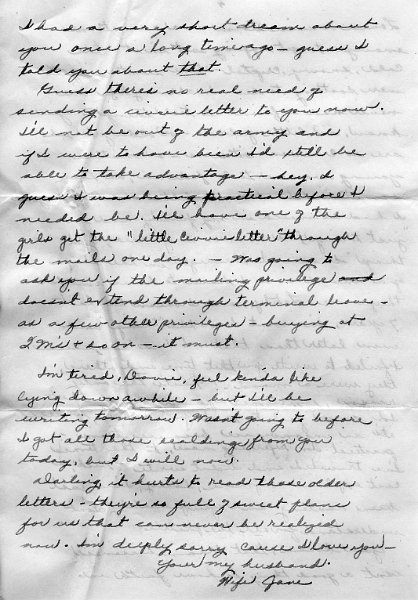 I had a very short dream about
you once a long time ago - guess I
told you about that.
Guess there's no real need of
sending a civvie letter to you now.
I'll not be out of the army and
if I were to have been I'd still be
able to take advantage - hey, I
guess I was being practical before I
needed be. I'll have one of the
girls get the "little civvie letter" through
the mails one day. - Was going to
ask you if the mailing privilege and
doesn't extend through terminal leave -
as a few other privileges - buying at
QM's & so on - it must.
I'm tired, Davie, feel kinda like
lying down awhile - but I'll be
writing tomorrow. Wasn't going to before
I got all those scoldings from you
today, but I will now.
Darling, it hurts to read those older
letters - they're so full of sweet plans
for us that can never be realized
now. I'm deeply sorry 'cause I love you -
your my husband.
Wife Jane